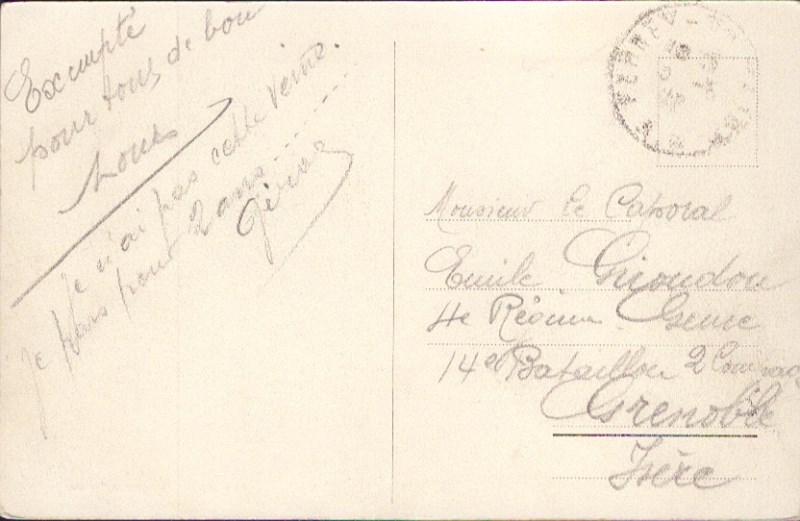 Exempté
pour tous de bon
Louis
Je n'ai pas cette veine.
Je pars pour 2 ans
Monsieur le Caporal
Emile Girondon
4e Régim Genie
14e Bataillon 2 Compag
Grenoble
Isère